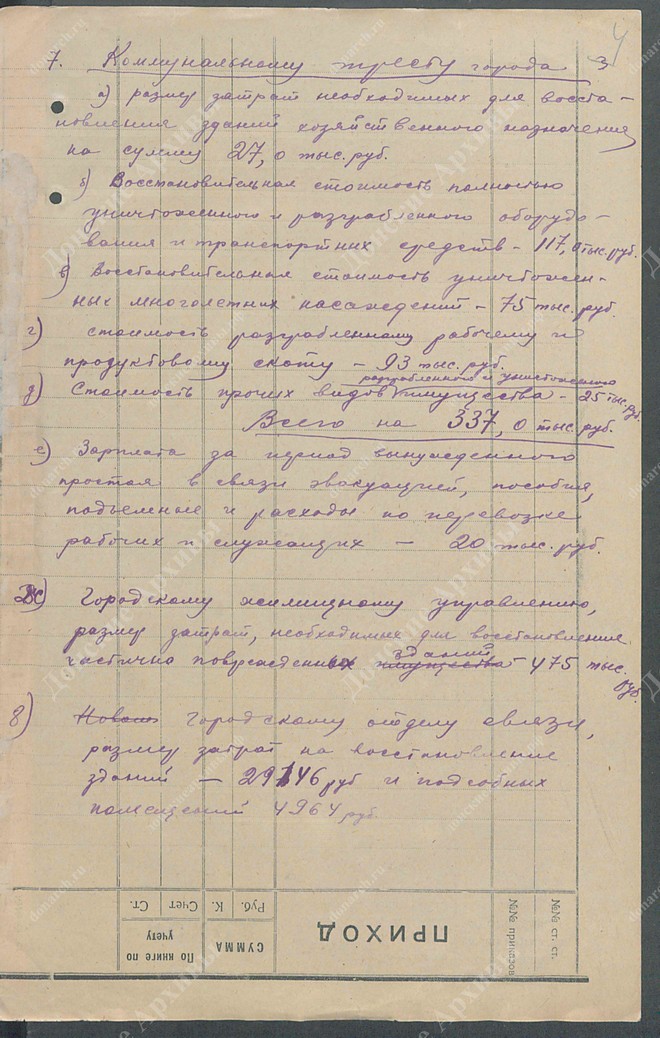 4
7. Коммунальному тресту города 3
а) размер затрат необходимых для восста-
новления зданий хозяйственного назначения
на сумму 27,0 тыс. руб.
б) Восстановительная стоимость полностью
уничтоженного и разграбленного оборудо-
вания и транспортних средств - 117,0 тыс. руб.
в) Восстановительная стоимость уничтожен-
ных многолетних насаждений - 75 тыс. руб.
г) стоимость разграбленному рабочему и
продуктовому скоту - 93 тыс. руб.
разграбленного и уничтоженного
д) Стоимость прочих видов имущества - 25 тыс. руб.
Всего на 337,0 тыс. руб.
е) Зарплата за период вынужденного
простоя в связи эвакуацией, пособия,
подъемные и расходы по перевозке
рабочих и служащих - 20 тыс. руб.
ж) Городскому жилищному управлению,
размер затрат, необходимых для восстановления
частично поврежденных имущества зданий - 475 тыс. руб.
8) Городскому отделу связи,
размер затрат на восстановление
зданий - 29146 руб и подсобных
помещений 4964 руб.
№№ ст. ст.
№№ приказов
ПРИХОД
СУММА
Руб. К.
По книге по учету
Счет Ст.
Донские Архивы
donarch.ru